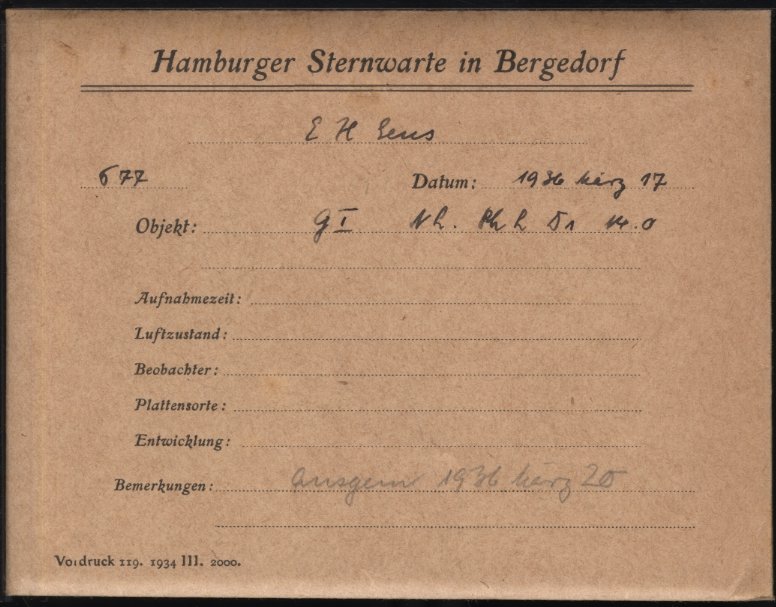 Hamburger Sternwarte in Bergedorf
E H
677 Datum: 1936 März 17
Objekt: G I Nh. 14.0
Aufnahmezeit:
Luftzustand:
Beobachter:
Plattensorte:
Entwicklung:
Bemerkungen: ausgem 1936 März 20
Vordruck 119. 1934 III. 2000.